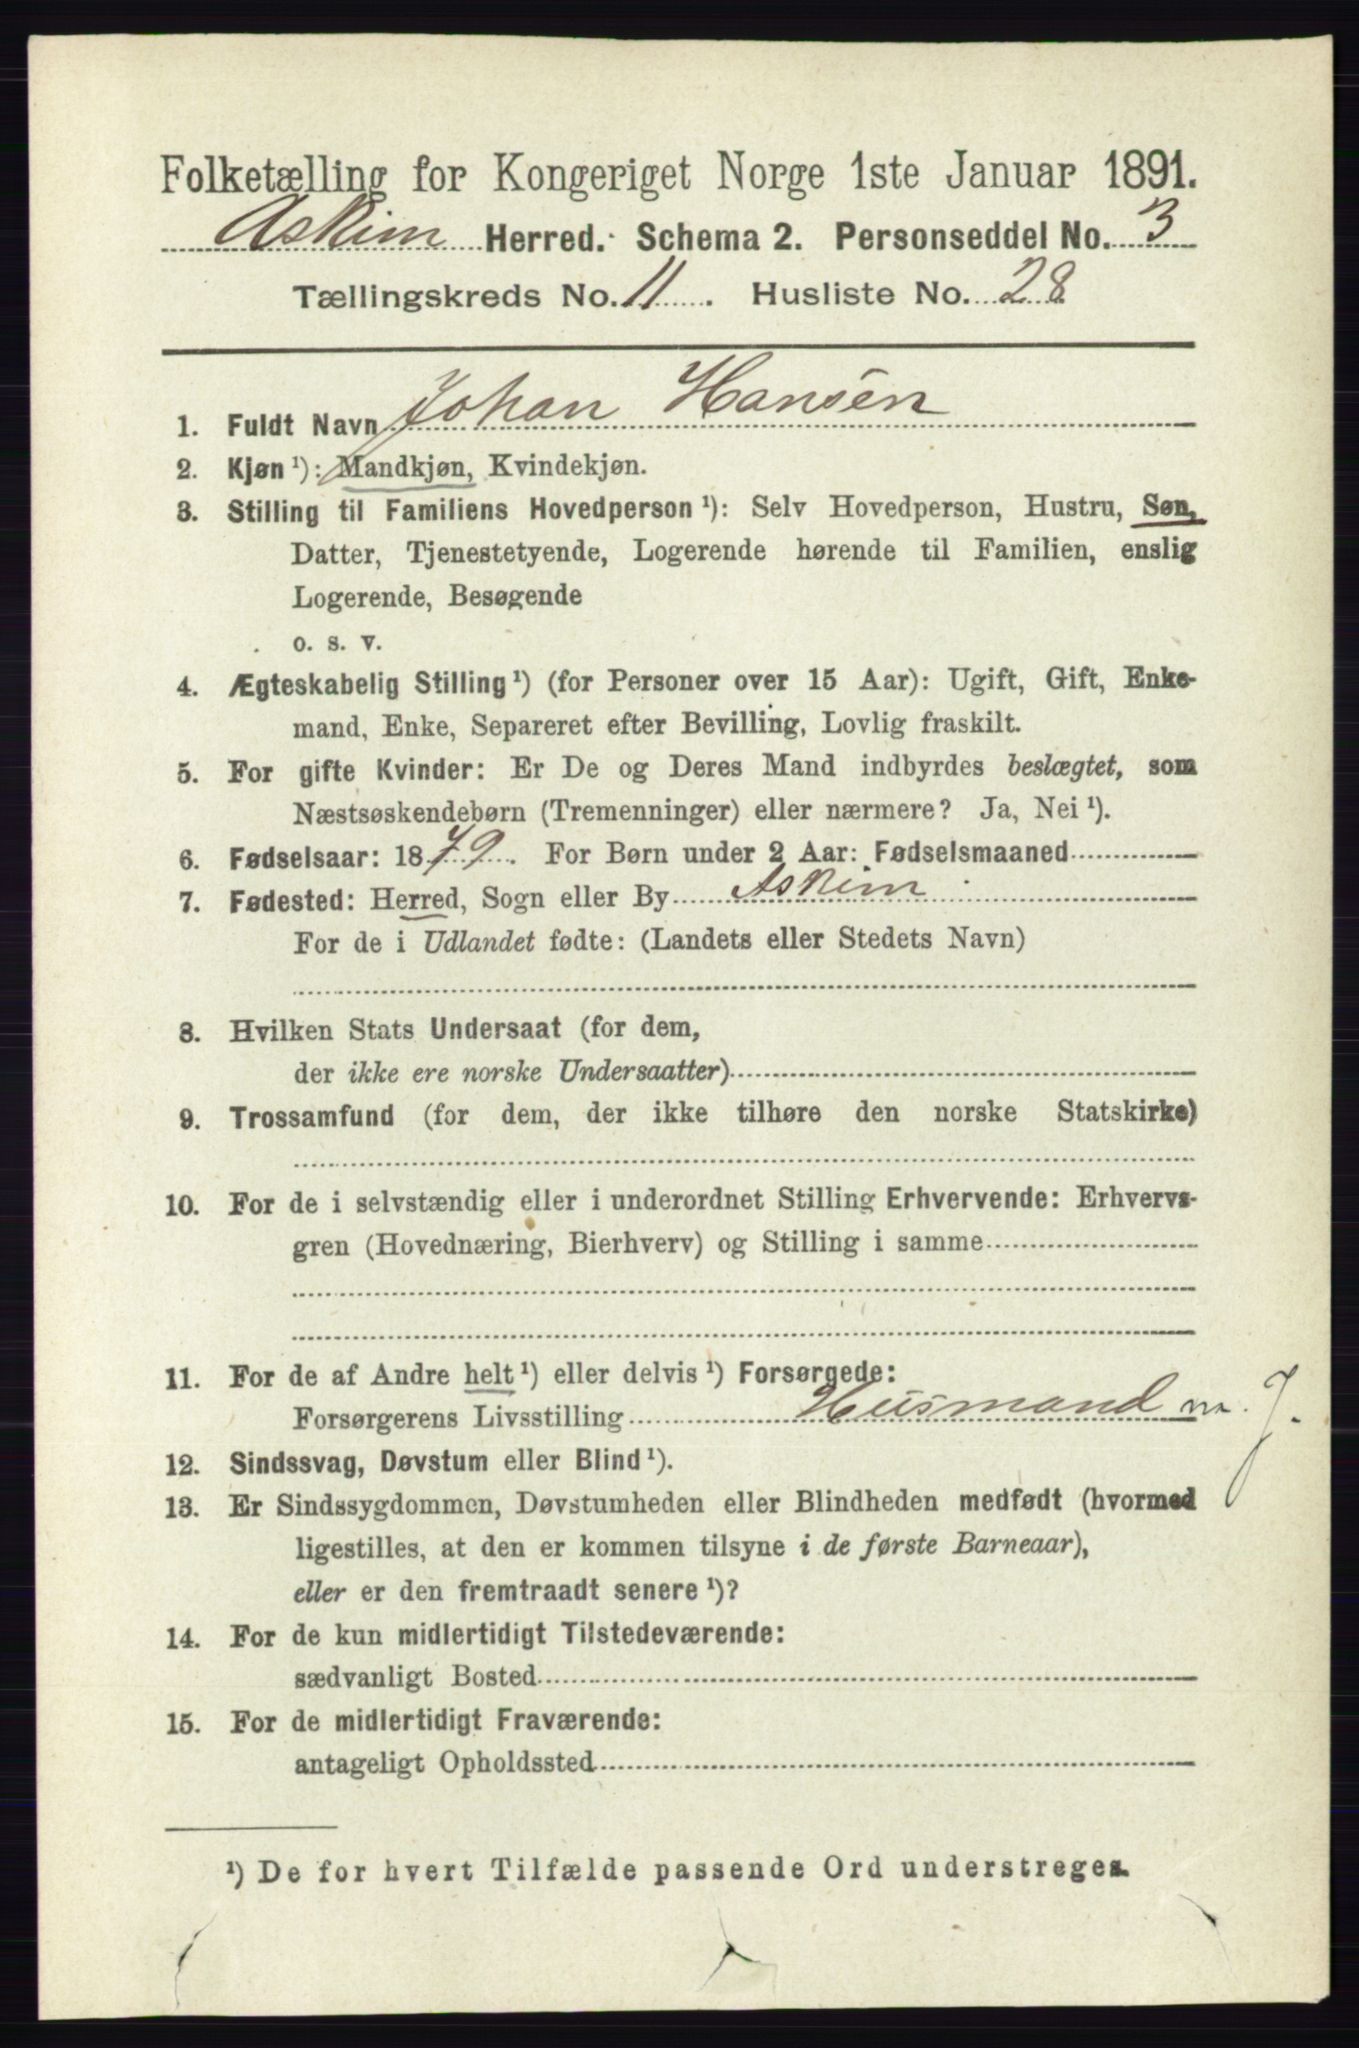 Folketælling for Kongeriget Norge 1ste Januar 1891.
Askim Herred. Schema 2. Personseddel No. 3
Tællingskreds No. 11. Husliste No. 28
1. Fuldt Navn Johan Hansen
2. Kjøn ¹): Mandkjøn, Kvindekjøn.
3. Stilling til Familiens Hovedperson ¹): Selv Hovedperson, Hustru, Søn,
Datter, Tjenestetyende, Logerende hørende til Familien, enslig
Logerende, Besøgende
o. s. v.
4. Ægteskabelig Stilling ¹) (for Personer over 15 Aar): Ugift, Gift, Enke-
mand, Enke, Separeret efter Bevilling, Lovlig fraskilt.
5. For gifte Kvinder: Er De og Deres Mand indbyrdes beslægtet, som
Næstsøskendebørn (Tremenninger) eller nærmere? Ja, Nei ¹).
6. Fødselsaar: 1879. For Børn under 2 Aar: Fødselsmaaned
7. Fødested: Herred, Sogn eller By Askim
For de i Udlandet fødte: (Landets eller Stedets Navn)
8. Hvilken Stats Undersaat (for dem,
der ikke ere norske Undersaatter)
9. Trossamfund (for dem, der ikke tilhøre den norske Statskirke)
10. For de i selvstændig eller i underordnet Stilling Erhvervende: Erhvervs-
gren (Hovednæring, Bierhverv) og Stilling i samme
11. For de af Andre helt ¹) eller delvis ¹) Forsørgede:
Forsørgerens Livsstilling Husmand m. J.
12. Sindssvag, Døvstum eller Blind ¹).
13. Er Sindssygdommen, Døvstumheden eller Blindheden medfødt (hvormed
ligestilles, at den er kommen tilsyne i de første Barneaar),
eller er den fremtraadt senere ¹)?
14. For de kun midlertidigt Tilstedeværende:
sædvanligt Bosted
15. For de midlertidigt Fraværende:
antageligt Opholdssted
¹) De for hvert Tilfælde passende Ord understreges.